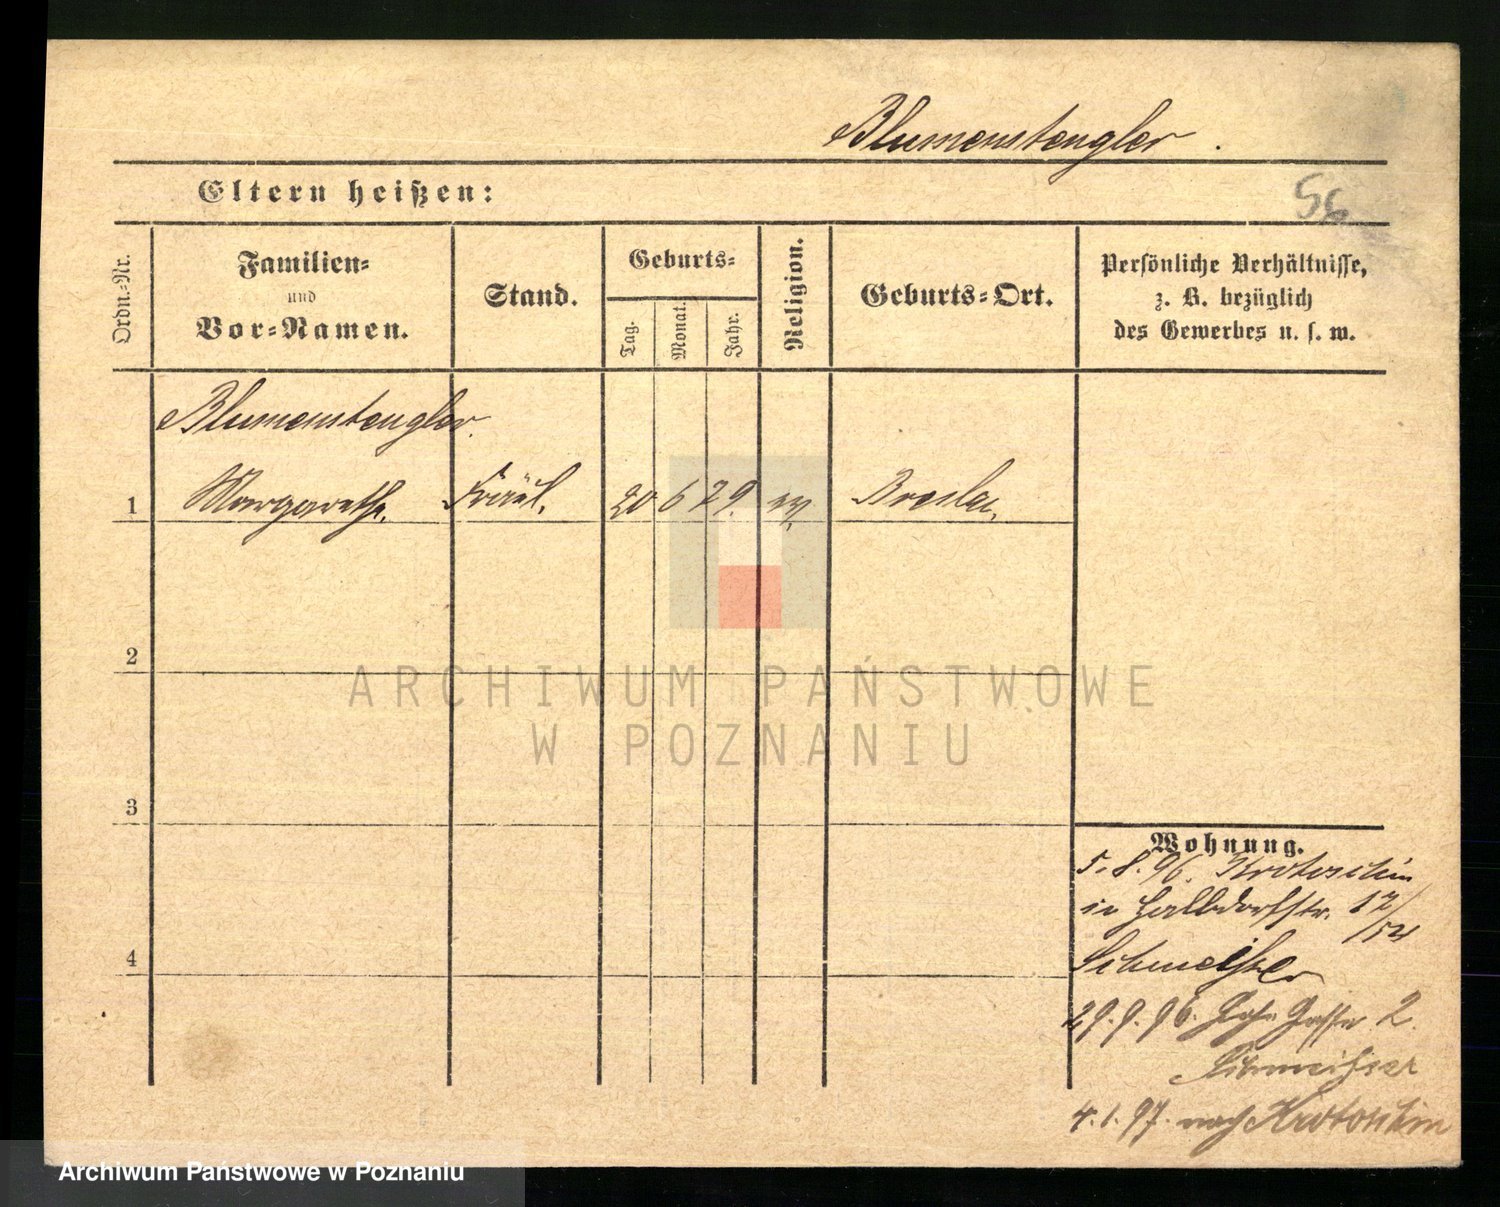 Blumenstengler.
Eltern heißen:
56
Ordn.-Nr.
Familien-
und
Vor-Namen.
Stand.
Geburts-
Tag.
Monat.
Jahr.
Religion.
Geburts-Ort.
Persönliche Verhältnisse,
z. B. bezüglich
des Gewerbes u. s. w.
Blumenstengler.
1 Margarethe. Fräul. 20 6 79. ev. Breslau.
2
ARCHIWUM PAŃSTWOWE
W POZNANIU
3
Wohnung.
5.8.96. Krotoschin
in Halbdorfstr. 17/
Schmeißer
4
29.9.96. Hohe Gasse 2.
Schmeißer
4.1.97. nach Krotoschin
Archiwum Państwowe w Poznaniu